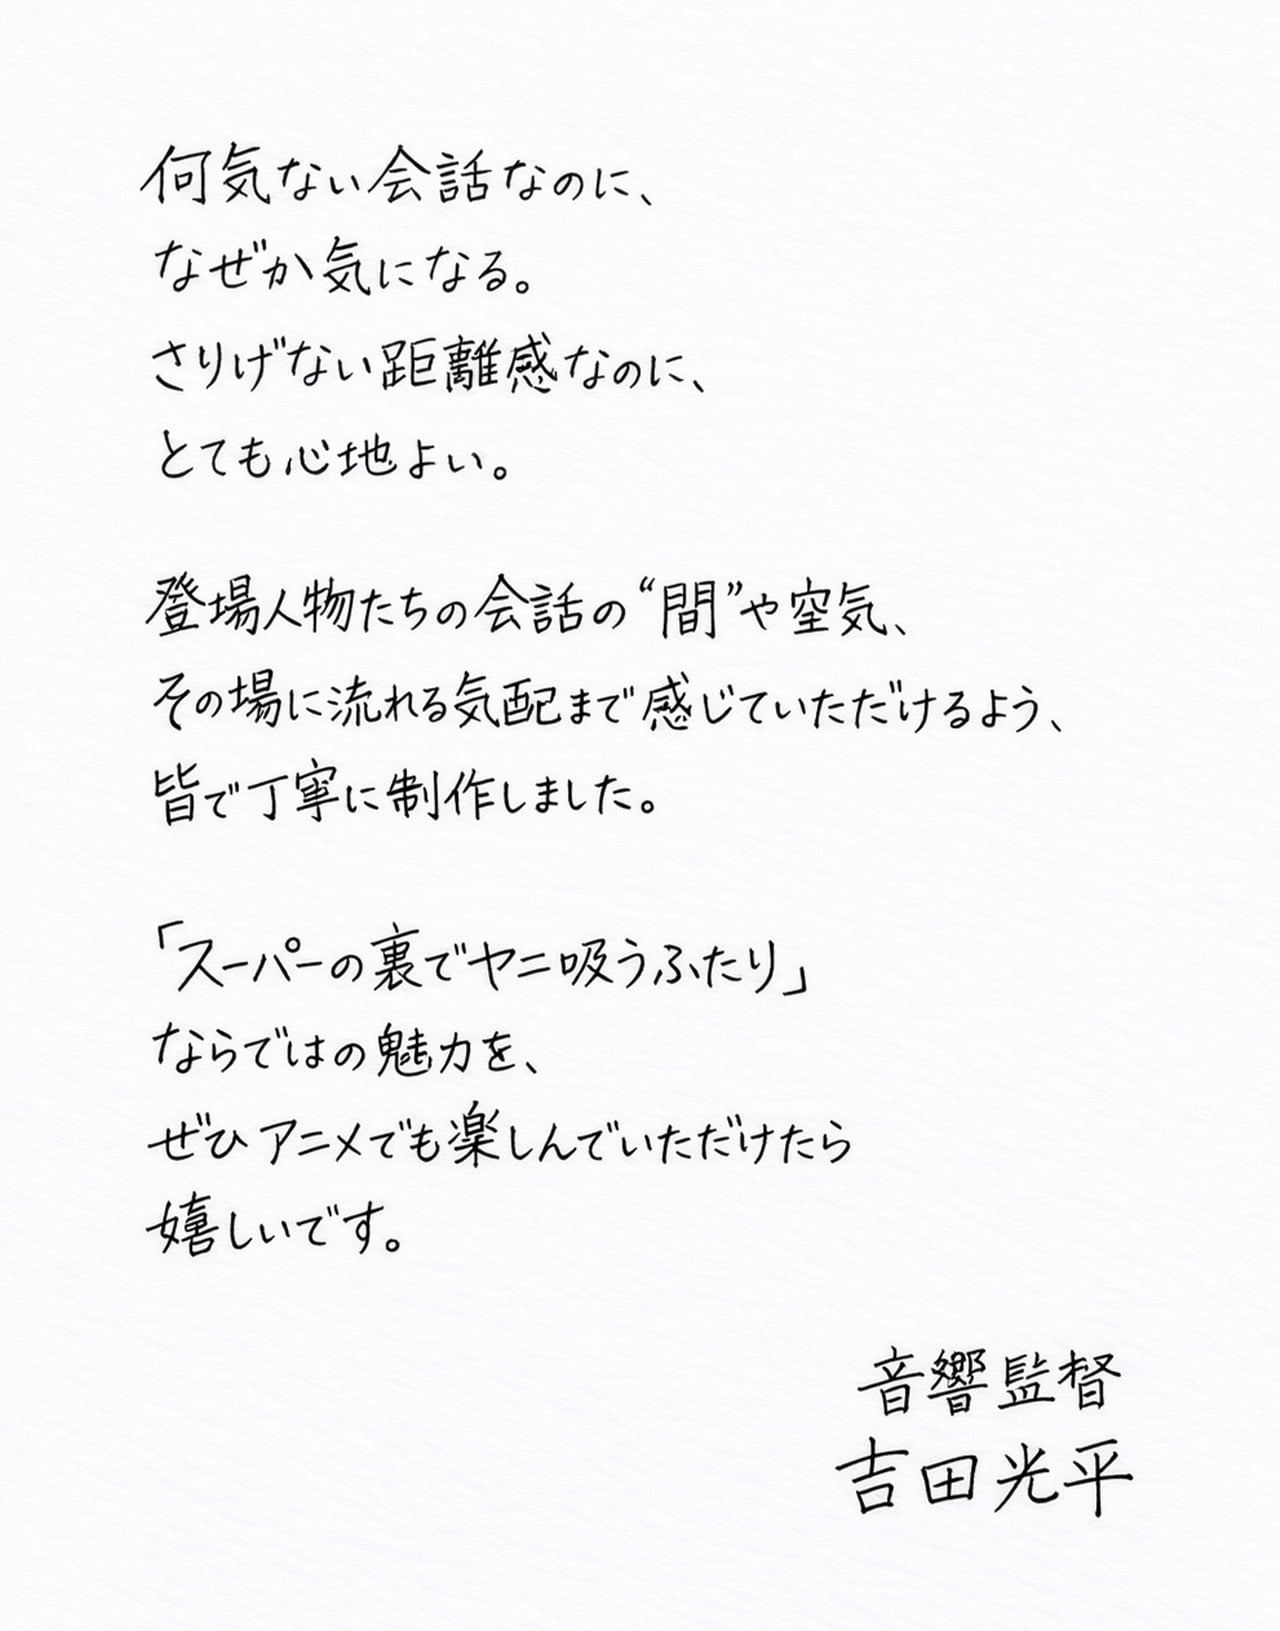 何気ない会話なのに、
なぜか気になる。
さりげない距離感なのに、
とても心地よい。
登場人物たちの会話の“間”や空気、
その場に流れる気配まで感じていただけるよう、
皆で丁寧に制作しました。
「スーパーの裏でヤニ吸うふたり」
ならではの魅力を、
ぜひアニメでも楽しんでいただけたら
嬉しいです。
音響監督
吉田光平